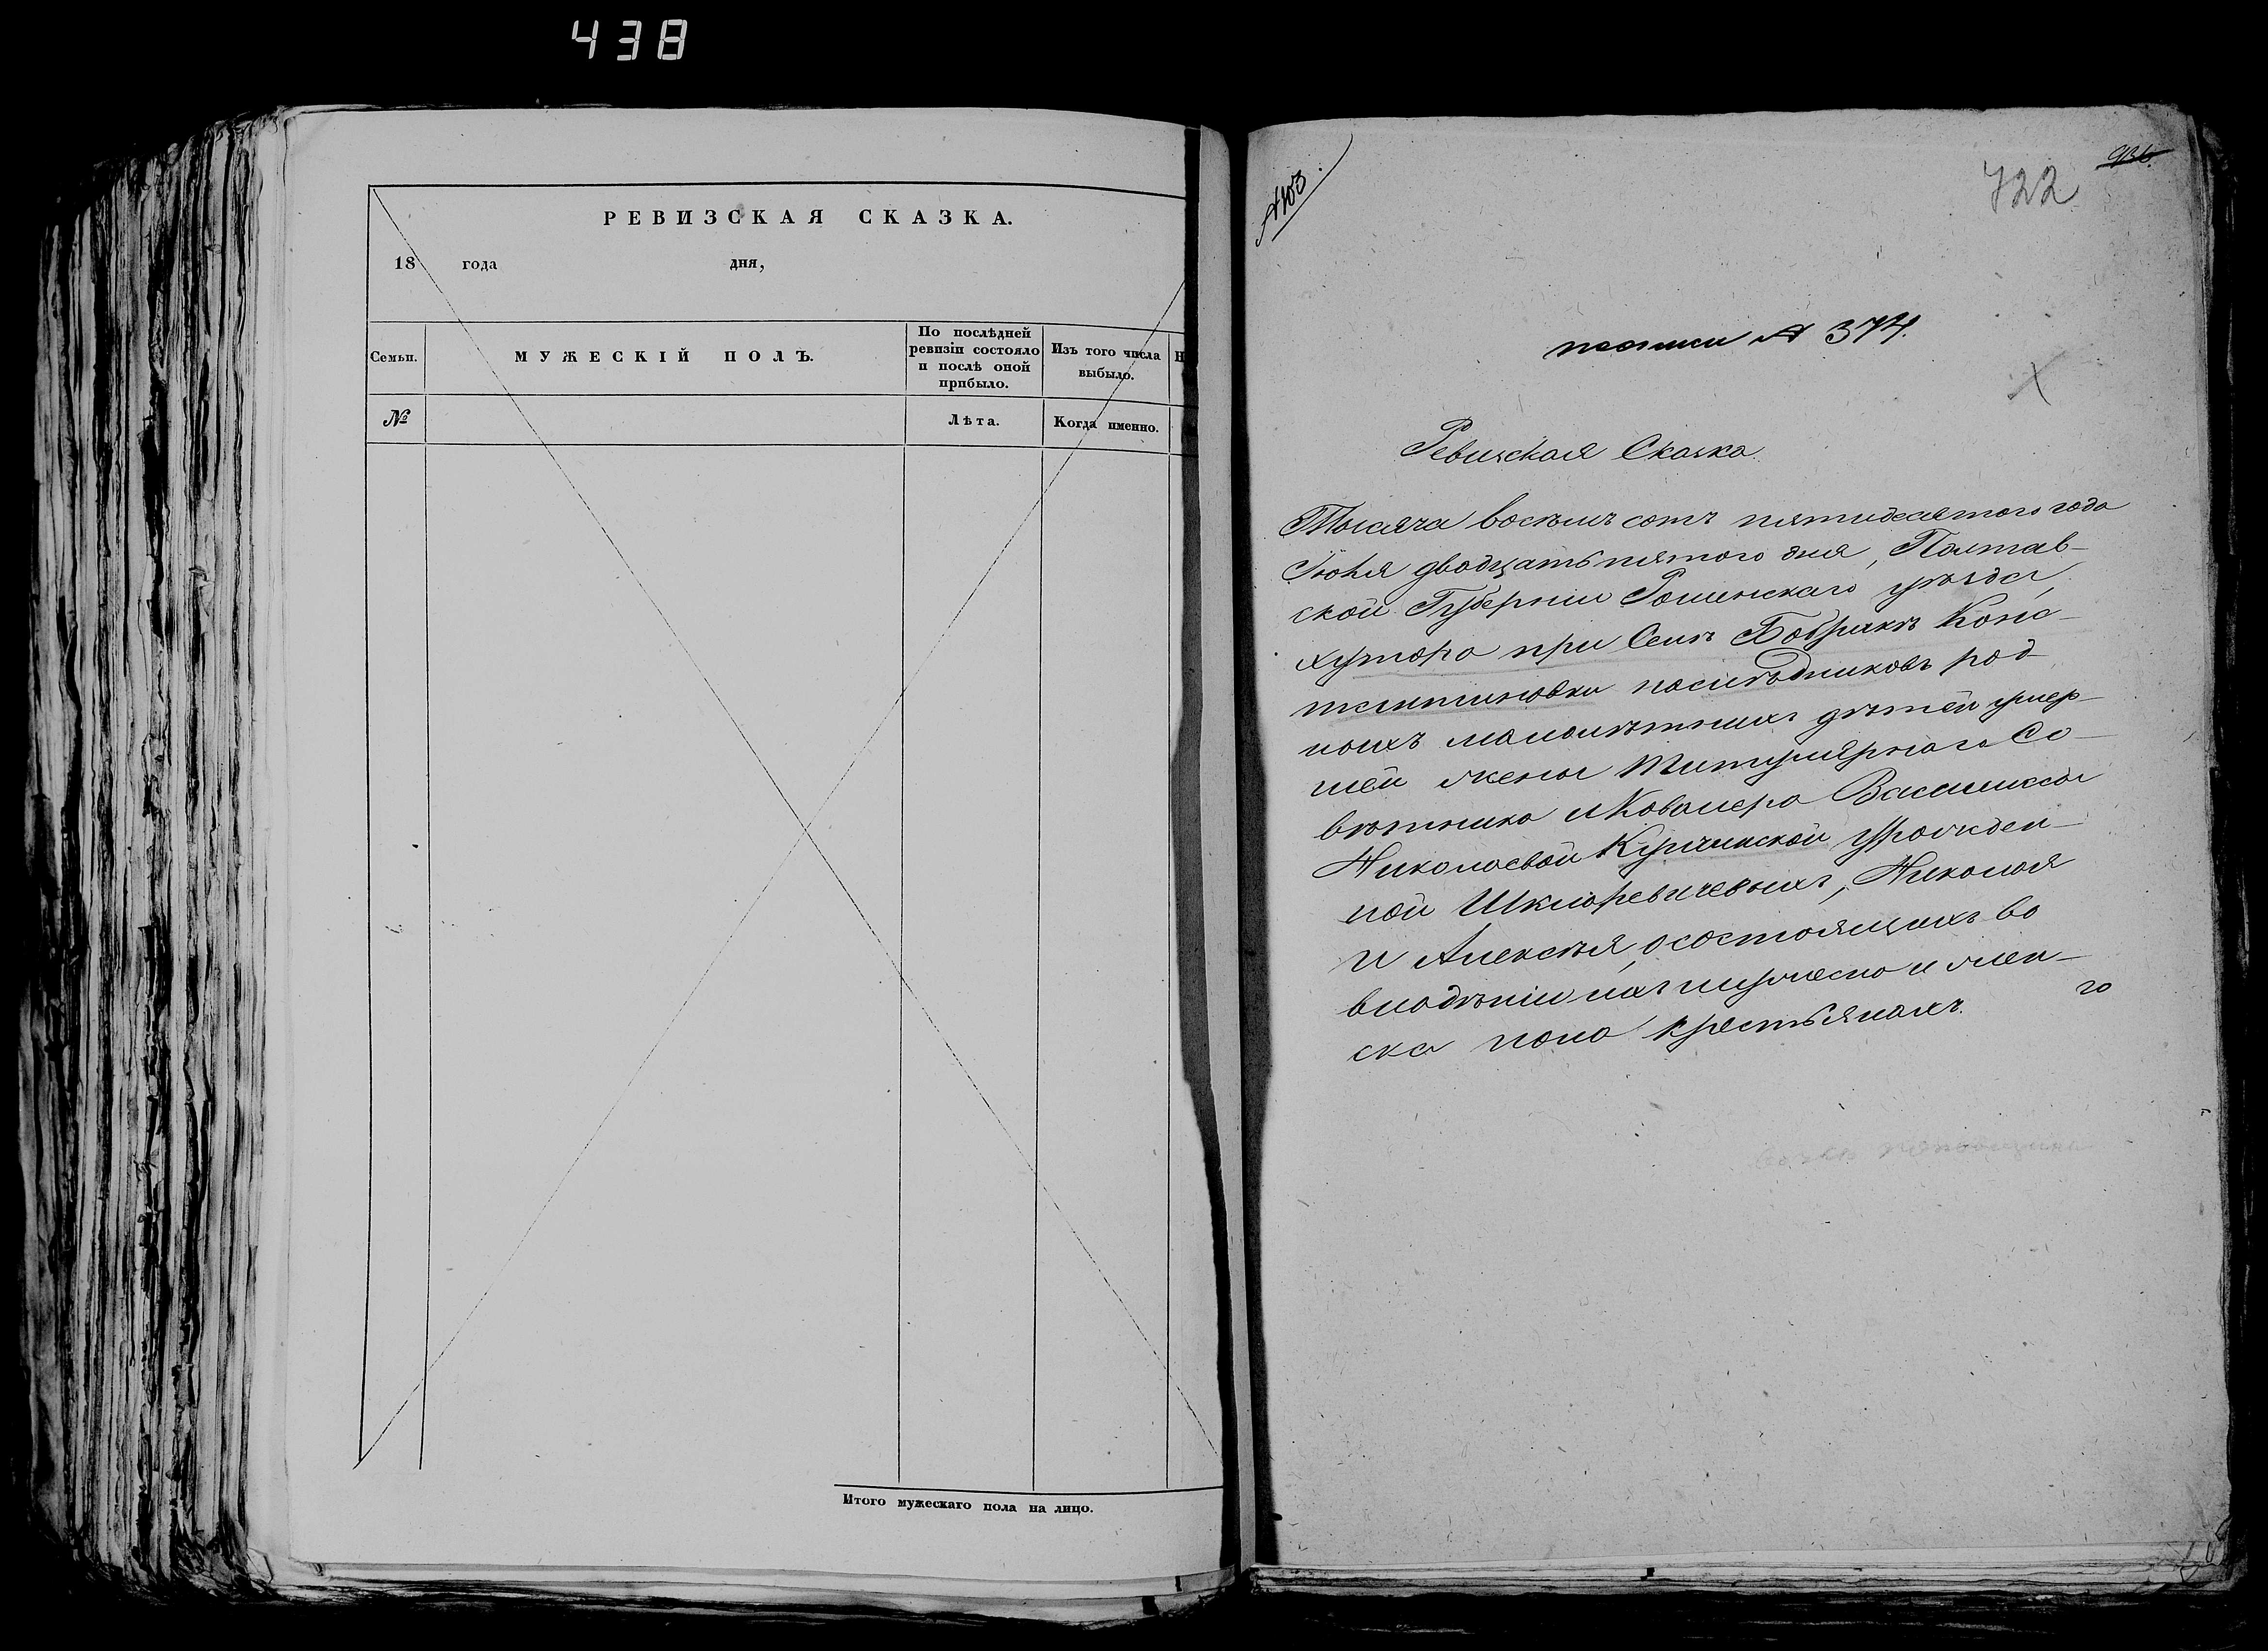 438
РЕВИЗСКАЯ СКАЗКА.
18 года дня,
Семьи.
МУЖЕСКІЙ ПОЛЪ.
По послѣдней
ревизіи состояло
и послѣ оной
прибыло.
Изъ того числа
выбыло.
Н
№
Лѣта.
Когда именно.
Итого мужескаго пола на лицо.
722
№ 374.
Ревизская Сказка
Тысяча восемъ сотъ пятидесятого года
Іюня двадцать пятого дня, Полтав-
ской Губерніи Роменскаго уѣзда,
хутора при Селѣ Бобрикѣ Конс-
тантиновки наслѣдниковъ род-
ныхъ малолѣтнихъ дѣтей умер-
шей жены Титулярнаго Со-
вѣтника и Кавалера Василисы
Николаевой урожден-
ной Шкляревичевыхъ, Николая
и Алексѣя, о состоящихъ во
владѣніи ихъ мужеска и жен-
го
ска пола крестьянахъ.